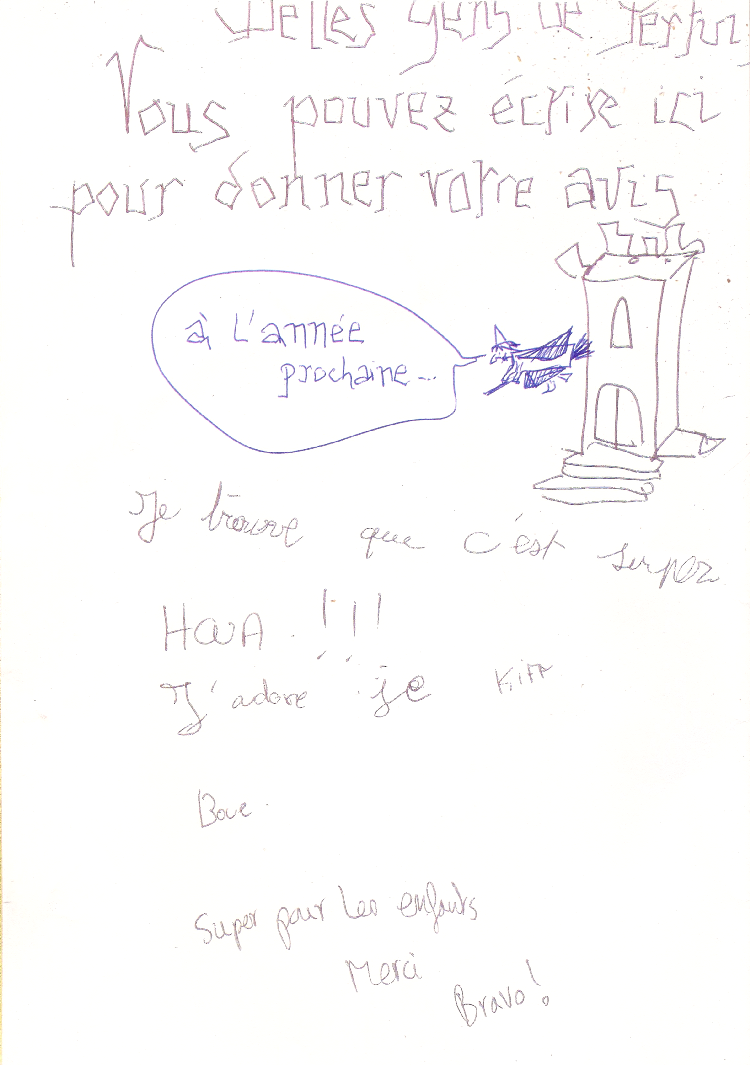 Belles gens de Pertui
Vous pouvez écrire ici
pour donner votre avis
à L'année
prochaine...
Je trouve que c'est super
HaaA. !!!
J'adore je Kiff
Bove.
Super pour les enfants
Merci
Bravo!